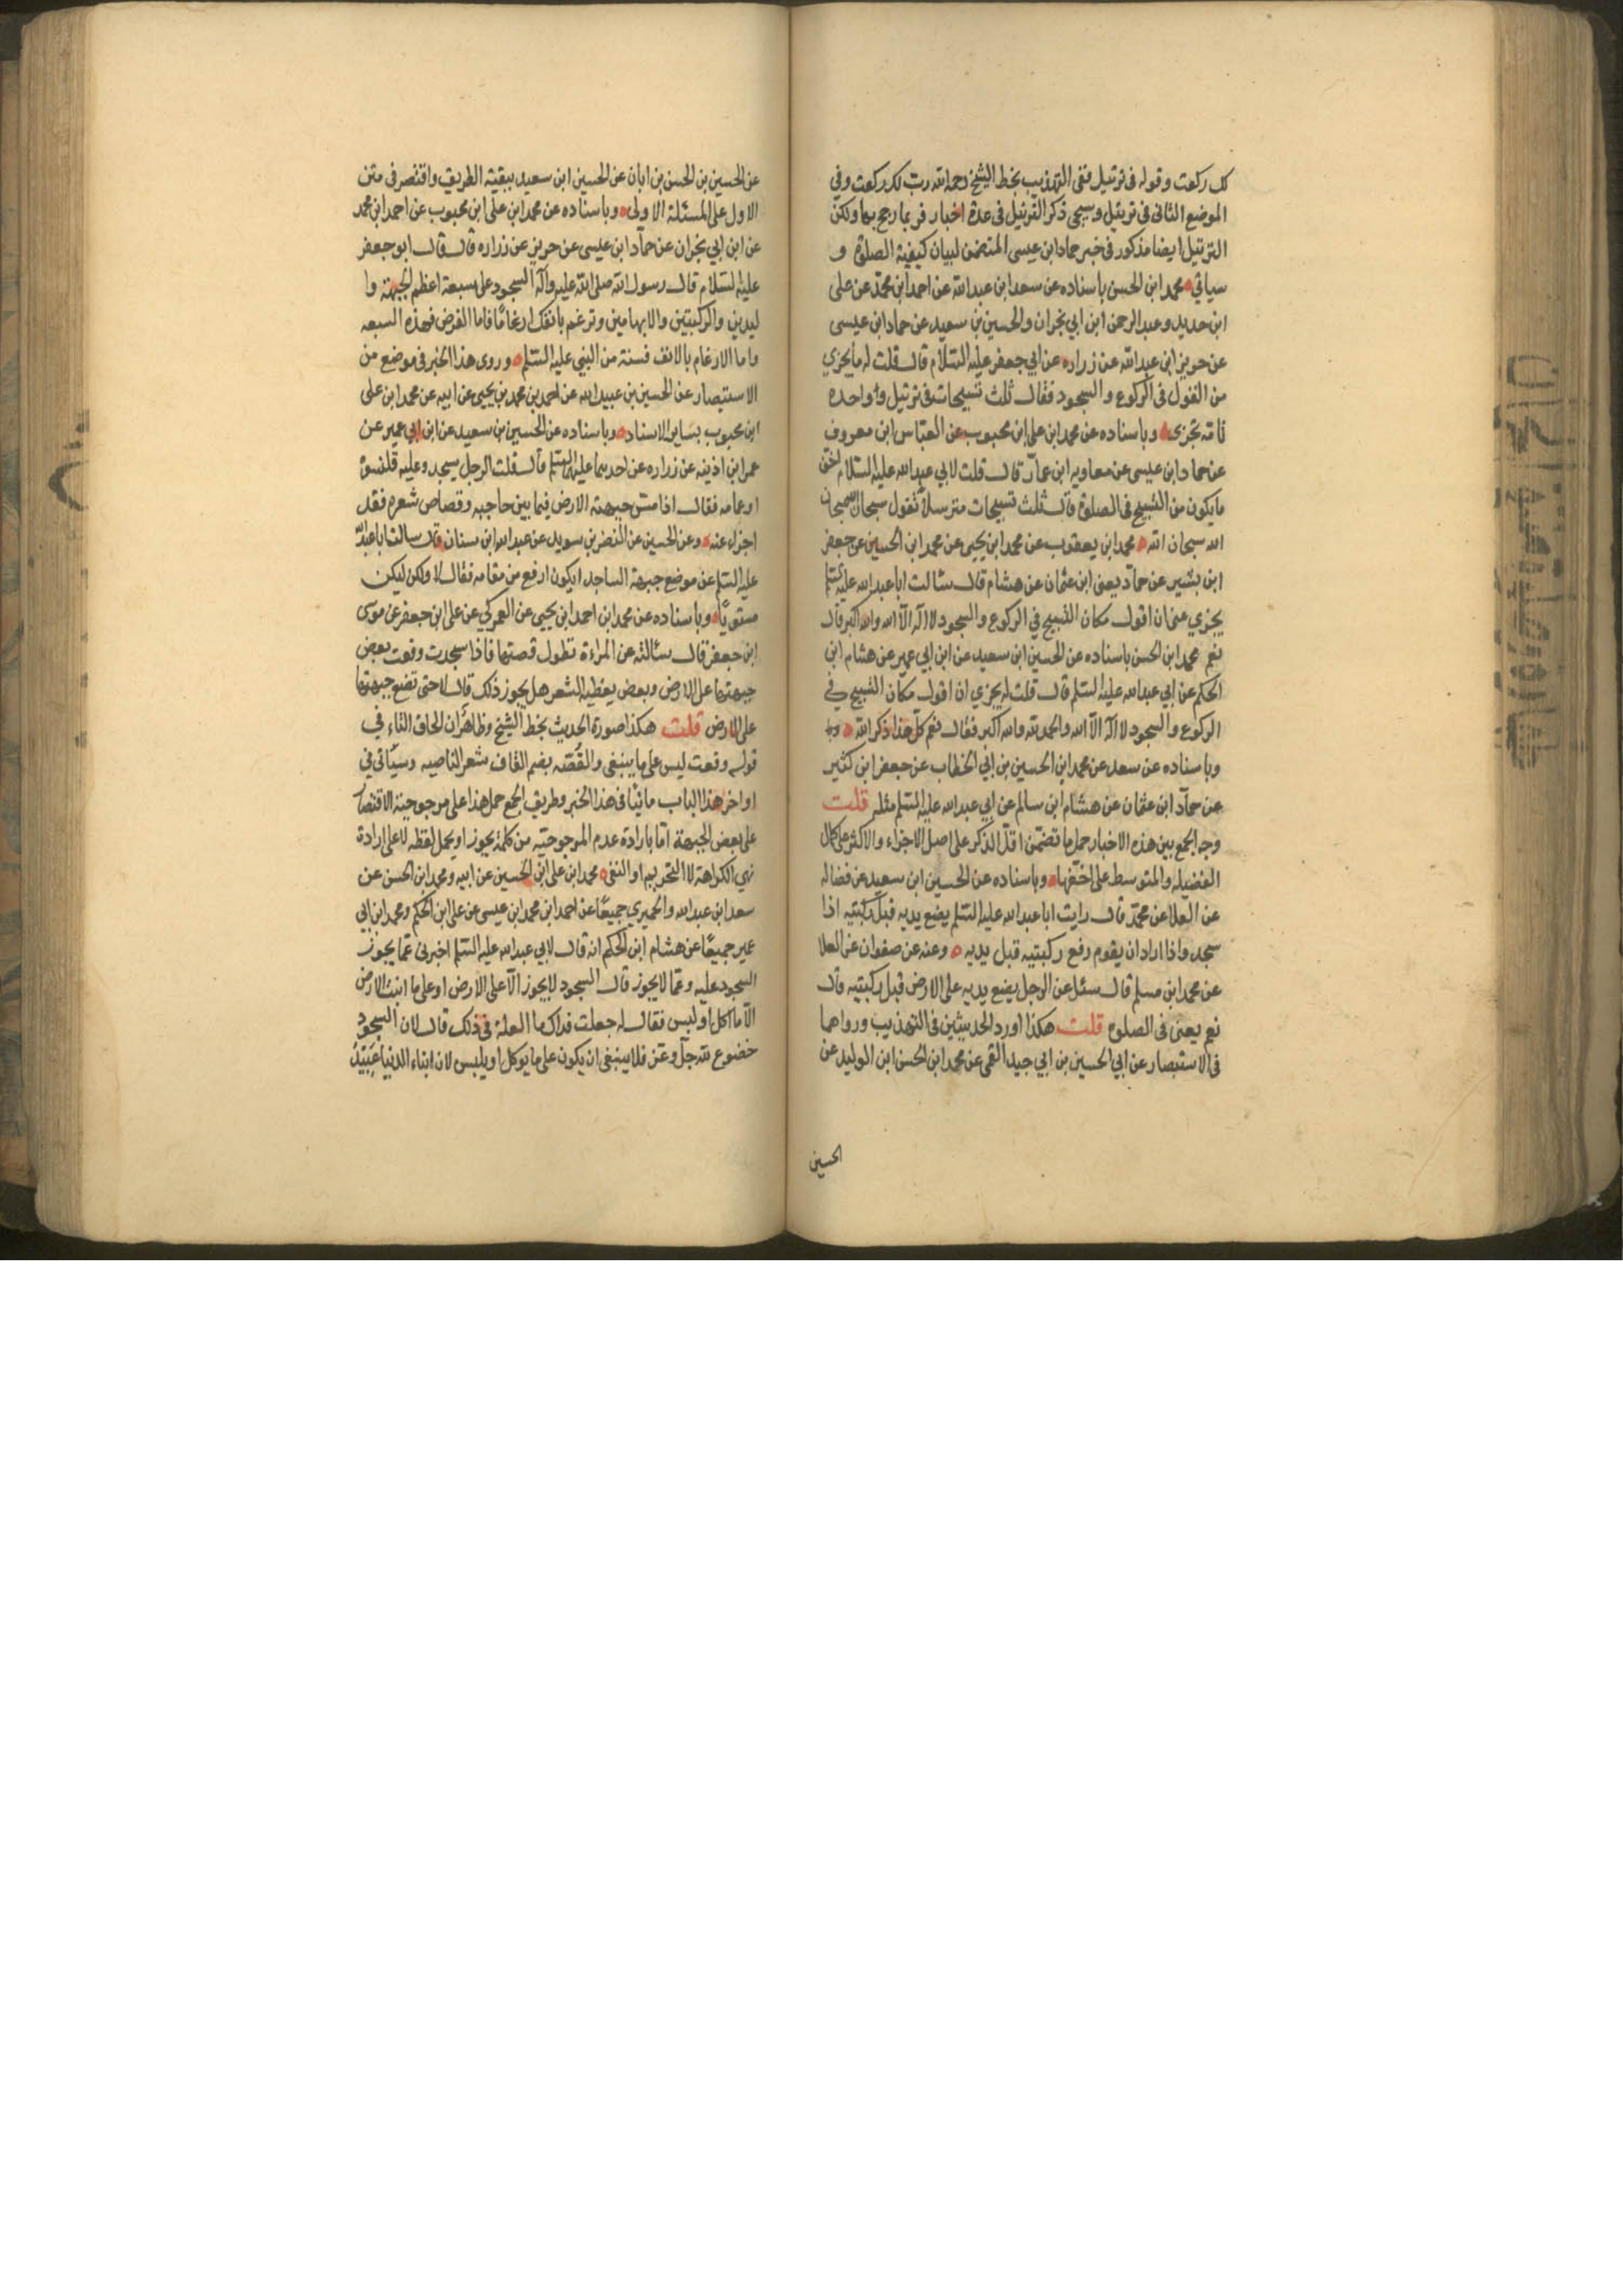 كل ركعت وقوله في ترتيل ففي التهذيب بخط الشيخ رحمه الله رب لكد ركعت وفي
الموضع الثاني في تريتل وسيجى ذكر الترتيل في عدة اخبار فربما رجح بها ولكن
الترتيل ايضا مذكور في خبر حماد ابن عيسى المتضمن لبيان كيفية الصلوة و
سياتي محمد ابن الحسن باسناده عن سعد ابن عبد الله عن احمد ابن محمد عن على
ابن حديد وعبد الرحمن ابن ابي نجران والحسين بن سعيد عن حماد ابن عيسى
عن حريز ابن عبد الله عن زراره عن ابي جعفر عليه السلام قال قلت له ما يجزي
من القول في الركوع والسجود فقال ثلث تسبيحات في ترتيل و واحده
تامه تجزى وباسناده عن محمد ابن على ابن محبوب عن العباس ابن معروف
عن حماد ابن عيسى عن معاويه ابن عمار قال قلت لابي عبد الله عليه السلام اخف
مايكون من التسبيح في الصلوة قال ثلث تسبيحات مترسلا تقول سبحان الله سبحان
الله سبحان الله محمد ابن يعقوب عن محمد ابن يحيى عن محمد ابن الحسين عن جعفر
ابن بشير عن حماد يعنى ابن عثمان عن هشام قال سئالت ابا عبد الله عليه السلم
يجزي عنى ان اقول مكان التسبيح في الركوع والسجود لا اله الا الله والله اكبر قال
نعم محمد ابن الحسن باسناده عن الحسين ابن سعيد عن ابن ابي عمير عن هشام ابن
الحكم عن ابي عبد الله عليه السلم قال قلت له يجزي ان اقول مكان التسبيح في
الركوع والسجود لا اله الا الله والحمد لله والله اكبر فقال نعم كل هذا ذكر الله وبا
وباسناده عن سعد عن محمد ابن الحسين بن ابي الخطاب عن جعفر ابن كثير
عن حماد ابن عثمان عن هشام ابن سالم عن ابي عبد الله عليه السلم مثله قلت
وجه الجمع بين هذه الاخبار حمل ما تضمن اقل الذكر على اصل الاجزاء والاكثر على كمال
الفضيله والمتوسط على اخفها وباسناده عن الحسين ابن سعيد عن فضاله
عن العلا عن محمد قال رايت ابا عبد الله عليه السلم يضع يديه قبل ركبتيه اذا
سجد واذا اراد ان يقوم رفع ركبتيه قبل يديه وعنه عن صفوان عن العلا
عن محمد ابن مسلم قال سئل عن الرجل يضع يديه على الارض قبل ركبتيه قال
نعم يعنى في الصلوة قلت هكذا اورد الحديثين في التهذيب ورواهما
في الاستبصار عن ابي الحسين بن ابي جيد القمى عن محمد ابن الحسن ابن الوليد عن
الحسين
عن الحسين بن الحسن بن ابان عن الحسين ابن سعيد ببقية الطريق واقتصر في متن
الاول على المسئلة الاولى وباسناده عن محمد ابن على ابن محبوب عن احمد ابن محمد
عن ابن ابي نجران عن حماد ابن عيسى عن حريز عن زراره قال قال ابو جعفر
عليه السلام قال رسول الله صلى الله عليه واله السجود على سبعة اعظم الجبهة وا
ليدين والركبتين والابهامين وترغم بانفك ارغاما فاما الفرض فهذه السبعه
واما الارغام بالانف فسنة من النبي عليه السلم وروى هذا الخبر في موضع من
الاستبصار عن الحسين بن عبيد الله عن احمد بن محمد بن يحيى عن ابيه عن محمد ابن على
ابن محبوب بساير الاسناد وباسناده عن الحسين بن سعيد عن ابن ابي عمير عن
عمر ابن اذينه عن زراره عن احدهما عليهما السلم قال قلت الرجل يسجد وعليه قلنسوة
او عمامه فقال اذا مس جبهته الارض فيما بين حاجبه وقصاص شعره فقد
اجزاء عنه وعن الحسين عن النضر بن سويد عن عبد الله ابن سنان قال سالت ابا عبد الله
عليه السلم عن موضع جبهة الساجد ايكون ارفع من مقامه فقال لا ولكن ليكن
مستويا وباسناده عن محمد ابن احمد ابن يحيى عن العمركي عن على ابن جعفر عن موسى
ابن جعفر قال سئالته عن المراءة تطول قصتها فاذا سجدت وقعت بعض
جبهتها على الارض وبعض يغطيه الشعر هل يجوز ذلك قال لا حتى تضع جبهتها
على الارض قلت هكذا صورة الحديث بخط الشيخ وظاهر ان الحاق التاء في
قوله وقعت ليس على ما ينبغى والقصه بضم القاف شعر الناصيه وسياتي في
اواخر هذا الباب ما ينافى هذا الخبر وطريق الجمع حمل هذا على مرجوحية الاقتصار
على بعض الجبهة اما بارادة عدم المرجوحيه من كلمة يجوز او يحمل لفظه لا على ارادة
نهي الكراهة لا التحريم او النفى محمد ابن على ابن الحسين عن ابيه ومحمد ابن الحسن عن
سعد ابن عبد الله والحميري جميعا عن احمد ابن محمد ابن عيسى عن على ابن الحكم ومحمد ابن ابي
عمير جميعا عن هشام ابن الحكم انه قال لابي عبد الله عليه السلم اخبرنى عما يجوز
السجود عليه وعما لا يجوز قال السجود لا يجوز الا على الارض او على ما انبت الارض
الا ما اكل او لبس فقال له جعلت فداك ما العلة في ذلك قال لان السجود
خضوع لله جل وعز فلا ينبغى ان يكون على ما يوكل او يلبس لان ابناء الدنيا عبيد